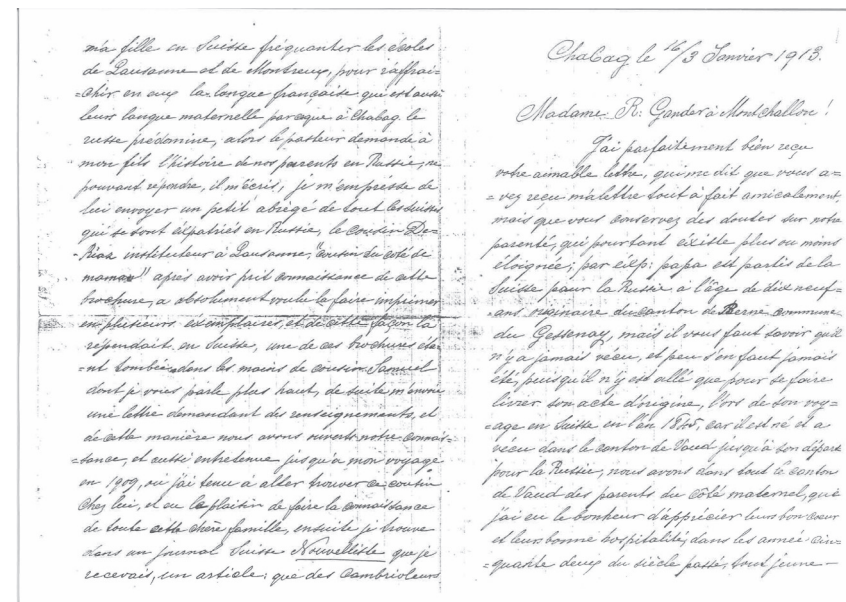 ma fille en Suisse fréquanter les écoles
de Lausanne et de Montreux, pour raffrai=
=chir en eux la langue française qui est aussi
leurs langue maternelle parceque à Chabag le
russe prédomine, alors le pasteur demande à
mon fils l'histoire de nos parents en Russie, ne
pouvant répondre, il m'écris, je m'empresse de
lui envoyer un petit abrégé de tout les suisses
qui se sont expatriés en Russie, le cousin De=
=Rias instituteur à Lausanne, "cousin du coté de
maman" après avoir prit connaissance de cette
brochure, a absolument voulu le faire imprimer
en plusieurs exemplaires, et de cette façon la
répendait en Suisse, une de ces brochures éte=
=nt tombée dans les mains de cousin Samuel
dont je vous parle plus haut, de suite m'envoie
une lettre demandant des renseignements, et
de cette manière nous avons nouer notre connais=
=sance, et aussi entretenue jusqu'à mon voyage
en 1909, ou j'ai tenu à aller trouver ce cousin
chez lui, et eu le plaisir de faire la connaissance
de toute cette chère famille, ensuite je trouve
dans un journal Suisse Nouvelliste que je
recevais, un article: que des Cambrioleurs
Chabag le 16/3 Janvier 1913.
Madame R. Gander à Montchallon!
J'ai parfaitement bien reçu
votre aimable lettre, qui me dit que vous a=
=vez reçu ma lettre tout à fait amicalement,
mais que vous conservez des doutes sur notre
parenté, qui pourtant existe plus ou moins
éloignée; par exp: papa est partis de la
Suisse pour la Russie à l'âge de dix neuf=
ans, orginaire du canton de Berne commune
du Gessenay, mais il vous faut savoir qu'il
n'y a jamais vécu, et peu s'en faut jamais
été, puisqu'il n'y est allé que pour se faire
livrer son acte d'origine, l'ors de son voy=
=age en Suisse en l'an car il est né et a
vécu dans le canton de Vaud jusqu'à son départ
pour la Russie, nous avons dans tout le canton
de Vaud des parents du côté maternel, que
j'ai eu le bonheur d'apprécier leurs bon cœur
et leurs bonne hospitalité, dans les année cin=
=quante deux du siècle passé, tout jeune—